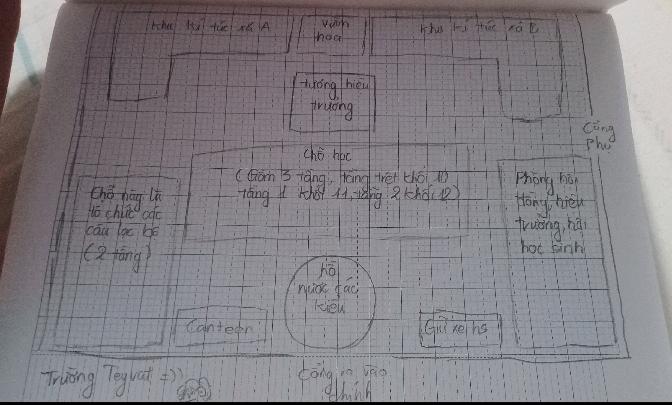 Khu kí túc xá A
vườn
hoa
Khu kí túc xá B
tượng hiệu
trưởng
Cổng
Phụ
Chỗ học
(Gồm 3 tầng, tầng trệt khối 10
tầng 1 khối 11, tầng 2 khối 12)
Chỗ này là
tổ chức các
câu lạc bộ
(2 tầng)
Phòng hội
đồng, hiệu
trưởng, hội
học sinh
hồ
nước các
kiểu
Canteen
Gửi xe hs
Trường Teyvat =))
Cổng ra vào
chính